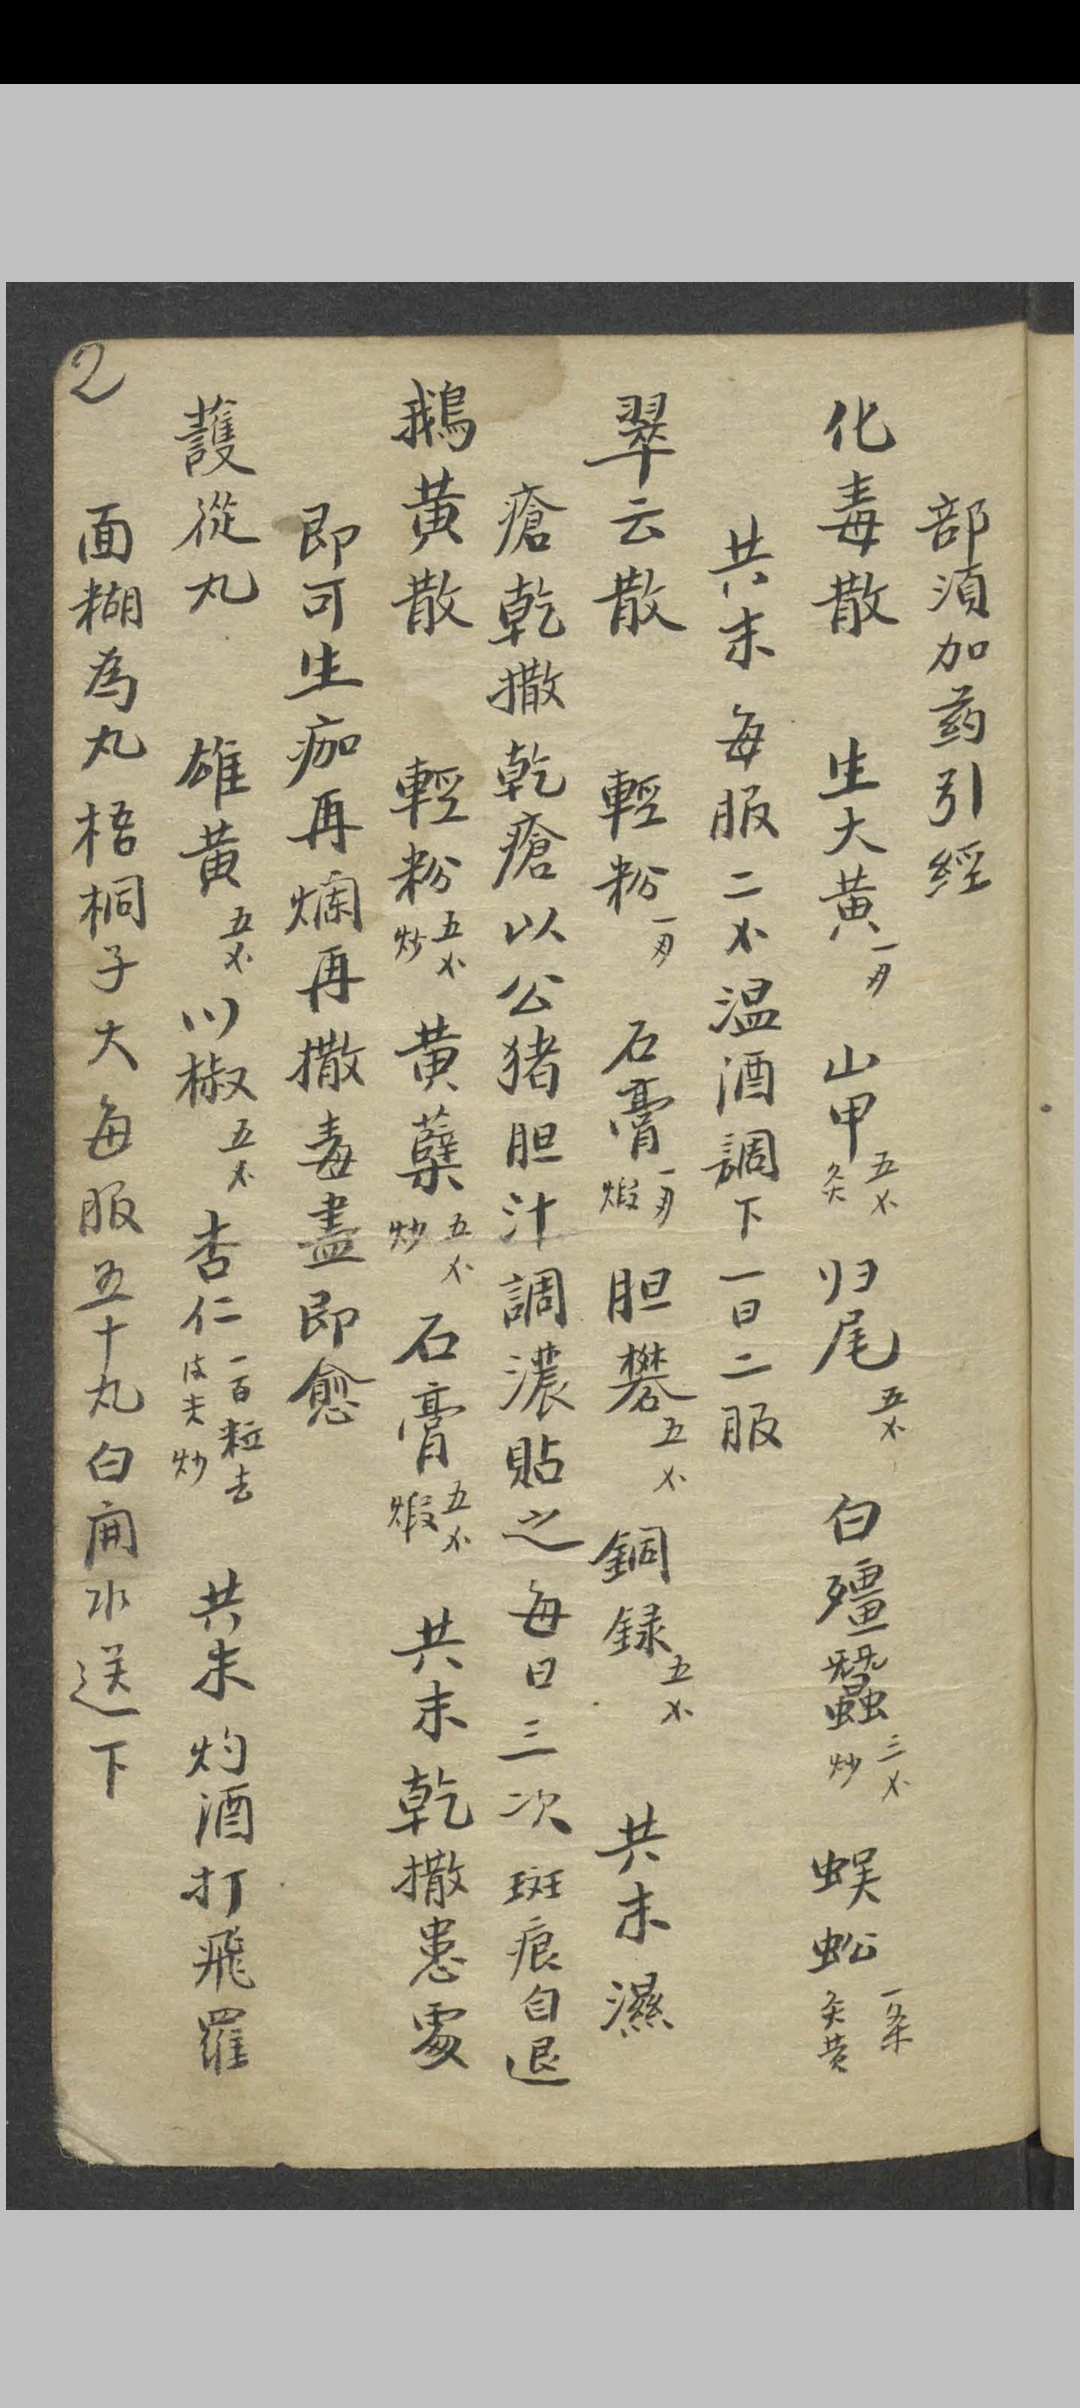 部須加药引經
化毒散 生大黄一刄 山甲五不炙 归尾五不 白殭蠶三不炒 蜈蚣一条炙黄
共末 每服二不温酒調下一日二服
翠云散 輕粉一刄 石膏一刄煅 胆礬五不 銅録五不 共末濕
瘡乾撒乾瘡以公猪胆汁調濃貼之每日三次斑痕自退
鵝黄散 輕粉五不炒 黄蘗五不炒 石膏五不煅 共末乾撒患處
即可生痂再爛再撒毒盡即愈
護從丸 雄黄五不 川椒五不 杏仁一百粒去皮尖炒 共末灼酒打飛羅
面糊為丸梧桐子大每服五十丸白開水送下
2